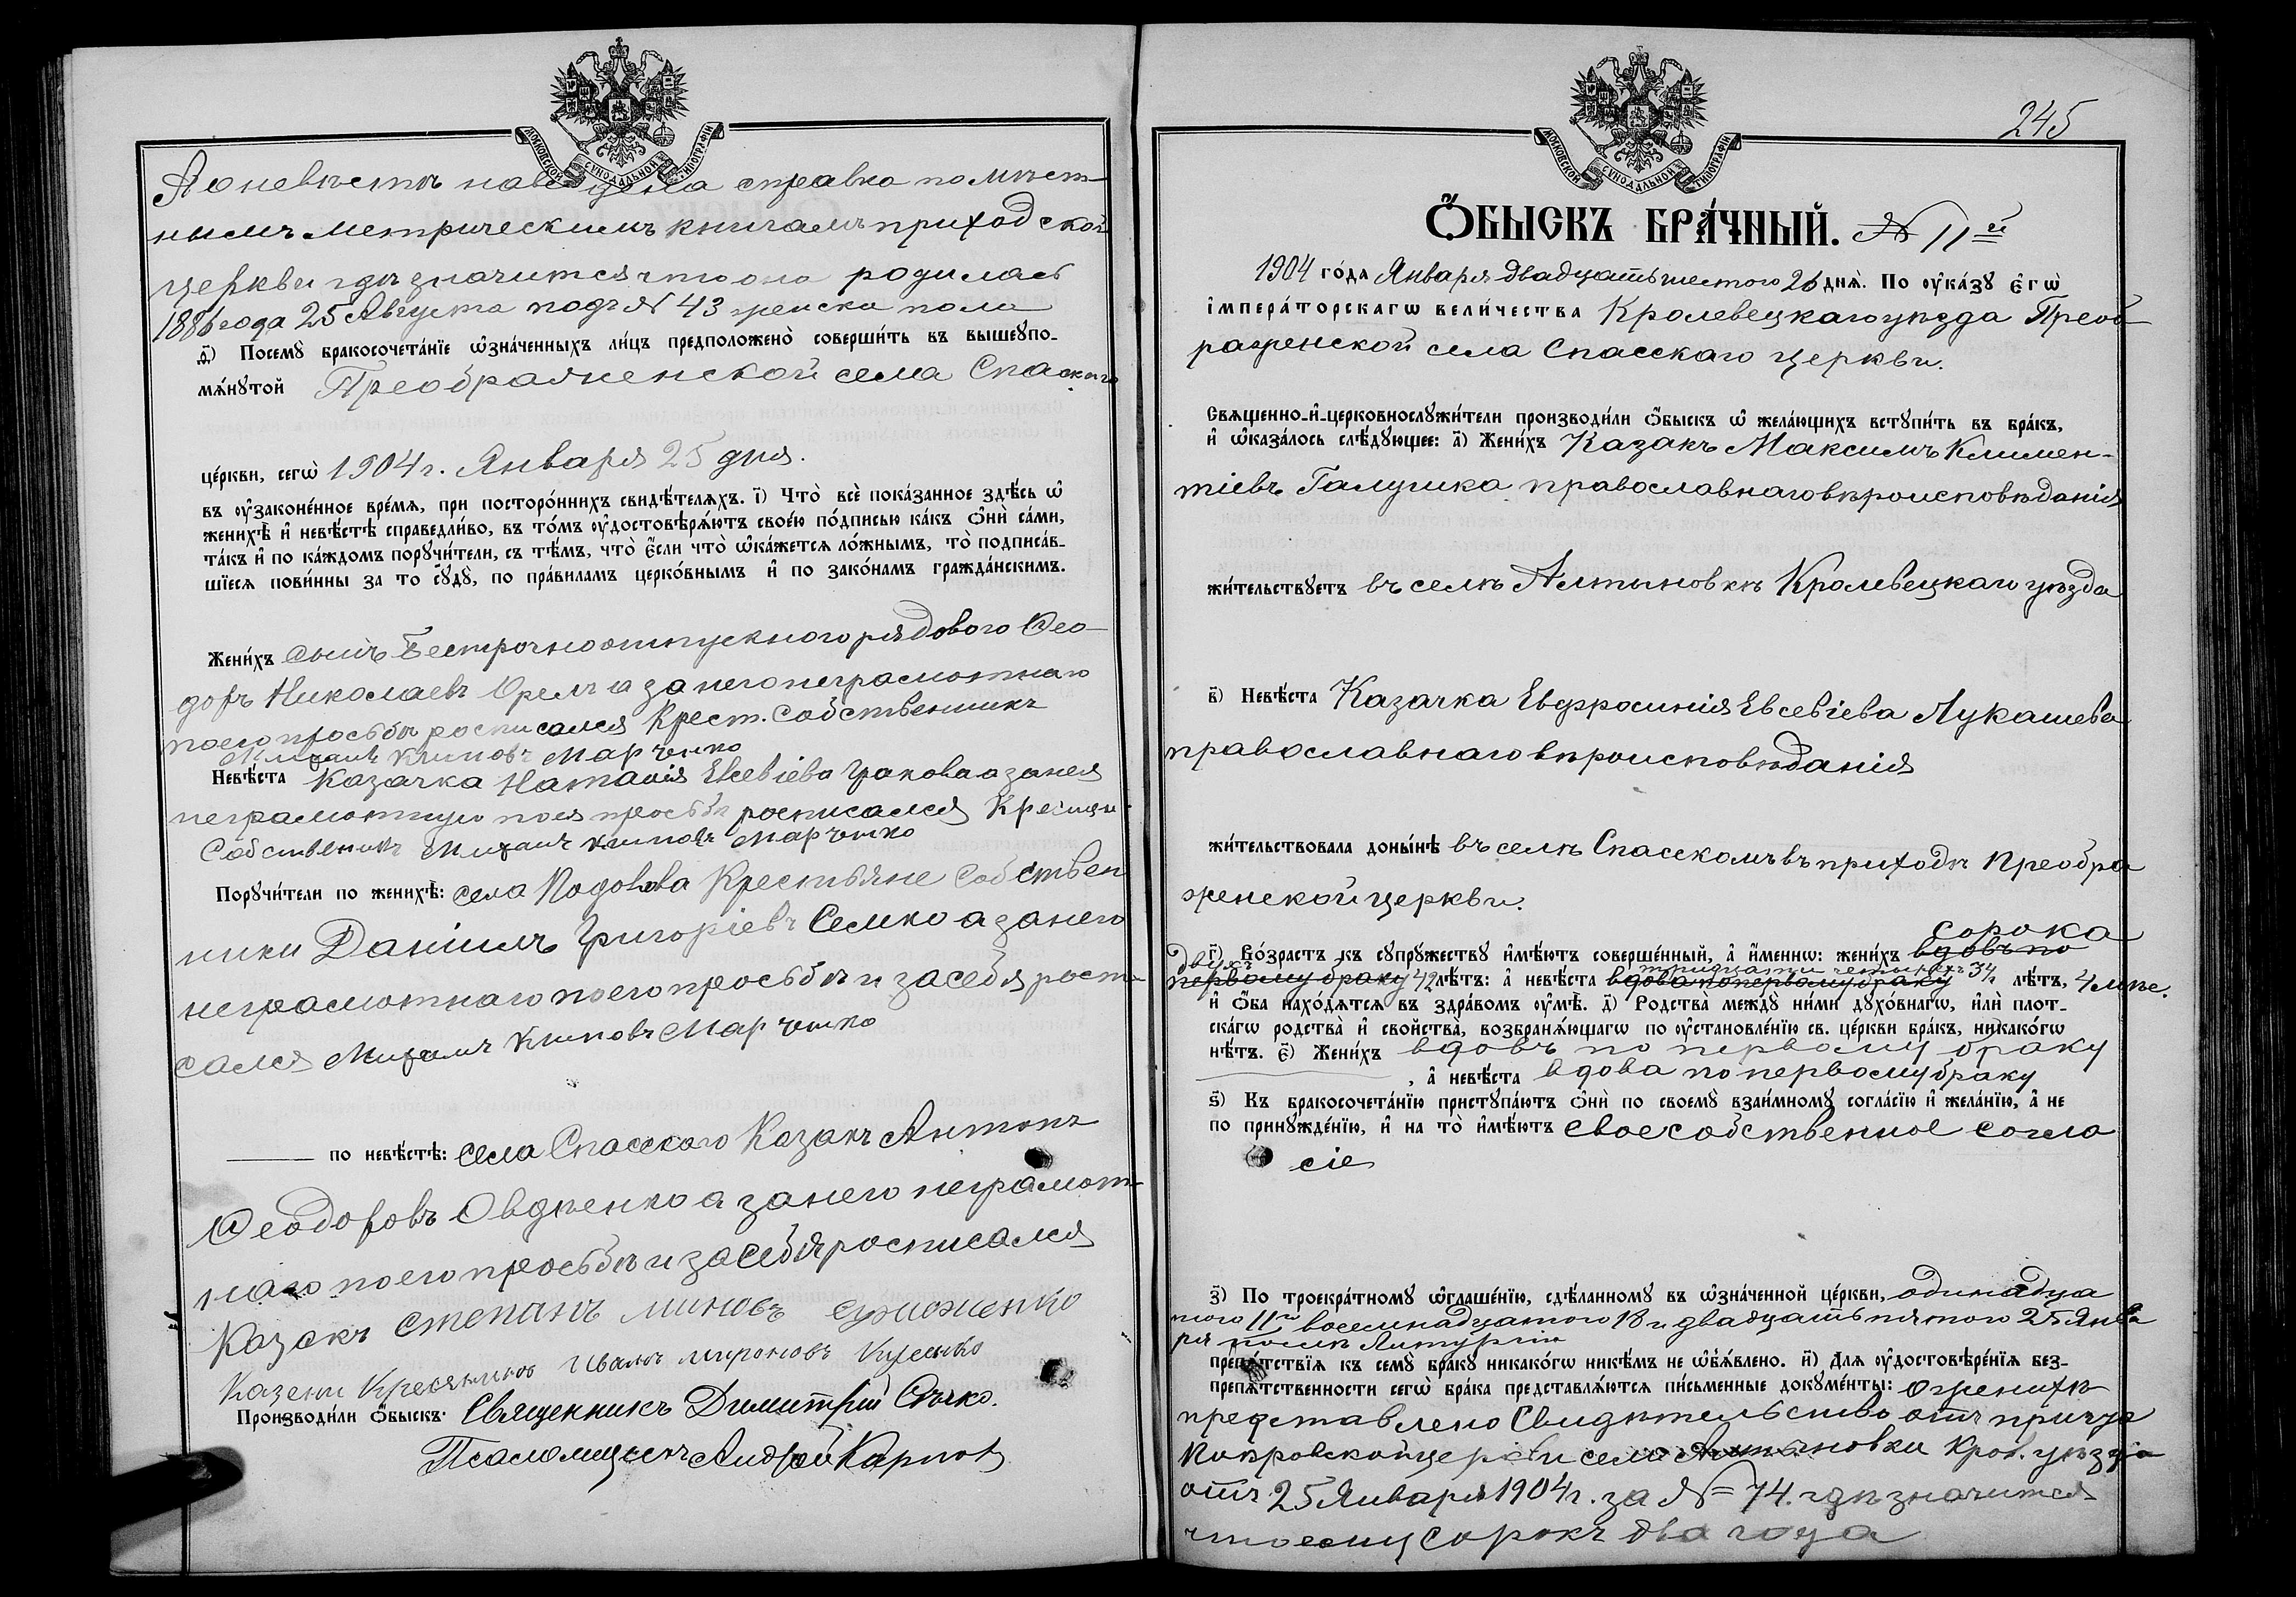 МОСКОВСКОЙ СѴНОДАЛЬНОЙ ТИПОГРАФІИ
А о невѣстѣ наведена справка по мѣст-
нымъ метрическимъ книгамъ приходской
церкви гдѣ значится что она родилась
1886 года 25 Августа подъ № 43 женска пола
д҃) Посемꙋ̀ бракосочета́нїе ѡ҆зна́ченныхъ ли́цъ предположено̀ соверши́ть въ вышеꙋпо-
мѧ́нꙋтой Преображенской села Спаскаго
це́ркви, сегѡ̀ 1904 г. Января 25 дня.
въ ᲂу҆законе́нное вре́мѧ, при посторо́ннихъ свидѣ́телѧхъ. і҃) Что̀ всѐ пока́занное здѣ́сь ѡ҆
женихѣ̀ и҆ невѣ́стѣ справедли́во, въ то́мъ ᲂу҆достовѣрѧ́ютъ свое́ю по́дписью ка́къ ѻ҆нѝ са́ми,
та́къ и҆ по ка́ждомъ порꙋчи́тели, съ тѣ́мъ, что̀ є҆́сли что̀ ѡ҆ка́жетсѧ ло́жнымъ, то̀ подписа́в-
шїесѧ пови́нны за то сꙋдꙋ̀, по пра́виламъ церко́внымъ и҆ по зако́намъ гражда́нскимъ.
Жени́хъ сынъ безсрочноотпускного рядового Ѳео-
доръ Николаевъ Орелъ а за него неграмотнаго
по его просьбѣ росписался Крест. Собственникъ
Михаилъ Климовъ Марченко
Невѣ́ста Казачка Наталія Евсевіева а за нея
неграмотную по ея просьбѣ росписался Крестян.
Собственикъ Михаилъ Климовъ Марченко
Порꙋчи́тели по женихѣ̀: села Подолова Крестьяне Собствен
ники Даніилъ Григоріевъ Семко а за него
неграмотнаго по его просьбѣ и за себя роспи
сался Михаилъ Климовъ Марченко
по невѣ́стѣ: села Спасскаго Казакъ Антонъ
Ѳеодоровъ Овдѣенко а за него неграмот-
наго по его просьбѣ и за себя росписался
Казакъ степанъ миновъ
Казени Кресянинъ Иванъ мироновъ
Производи́ли ѻ҆́быскъ: Священникъ Димитрій
Псаломщикъ Андрей Карпов
245
МОСКОВСКОЙ СѴНОДАЛЬНОЙ ТИПОГРАФІИ
Ѻ҆́БЫСКЪ БРА́ЧНЫЙ. № 11й
1904 го́да Января двадцать шестого 26 днѧ̀. По ᲂу҆ка́зꙋ є҆гѡ̀
і҆мпера́торскагѡ вели́чества Кролевецкаго уѣзда Преоб
раженской села Спасскаго церкви.
Свѧщенно-и҆-церковнослꙋжи́тели производи́ли ѻ҆́быскъ ѡ҆ жела́ющихъ встꙋпи́ть въ бра́къ,
и҆ ѡ҆каза́лось слѣ́дꙋющее: а҃) Жени́хъ Казакъ Максимъ Климен-
тіевъ Галушка православнаго вѣроисповѣданія
жи́тельствꙋетъ въ селѣ Алтыновкѣ Кролевецкаго уѣзда
в҃) Невѣ́ста Казачка Евфросинія Евсевіева Лукашева
православнаго вѣроисповѣданія
жи́тельствовала доны́нѣ въ селѣ Спасскомъ въ приходѣ Преобра
женской церкви.
сорока
г҃) Во́зрастъ къ сꙋпрꙋ́жествꙋ и҆мѣ́ютъ соверше́нный, а҆ и҆́меннѡ: жени́хъ вдовъ по
двухъ тридцати четырехъ
первому браку 42 лѣ́тъ: а҆ невѣ́ста вдова по первому браку 34 лѣ́тъ,
и҆ ѻ҆́ба нахо́дѧтсѧ въ здра́вомъ ᲂу҆мѣ̀. д҃) Родства̀ междꙋ̀ ни́ми дꙋхо́внагѡ, и҆лѝ плот-
ска́гѡ родства̀ и҆ свойства̀, возбранѧ́ющагѡ по ᲂу҆становле́нїю св. це́ркви бра́къ, никако́гѡ
нѣ́тъ. є҃) Жени́хъ вдовъ по первому браку
, а҆ невѣ́ста вдова по первому браку
ѕ҃) Къ бракосочета́нїю пристꙋпа́ютъ ѻ҆нѝ по своемꙋ̀ взаи́мномꙋ согла́сїю и҆ жела́нїю, а҆ не
по принꙋжде́нїю, и҆ на то̀ и҆мѣ́ютъ свое собственное согла
сіе
з҃) По троекра́тномꙋ ѡ҆глаше́нїю, сдѣ́ланномꙋ въ ѡ҆зна́ченной це́ркви, одинадца
того 11го восемнадцатого 18 и двадцать пятого 25 Янва
ря послѣ Литургіи
препѧ́тствїѧ къ семꙋ̀ бра́кꙋ никако́гѡ никѣ́мъ не ѡ҆б̾ѧ́влено. и҃) Длѧ ᲂу҆достовѣре́нїѧ без-
препѧ́тственности сегѡ̀ бра́ка представлѧ́ютсѧ пи́сьменные докꙋме́нты: о женихѣ
представлено Свидѣтельство отъ причта
Покровской церкви села Алтыновки Крол. уѣзда
отъ 25 Января 1904 г. за № 74. гдѣ значится
что ему сорокъ два года